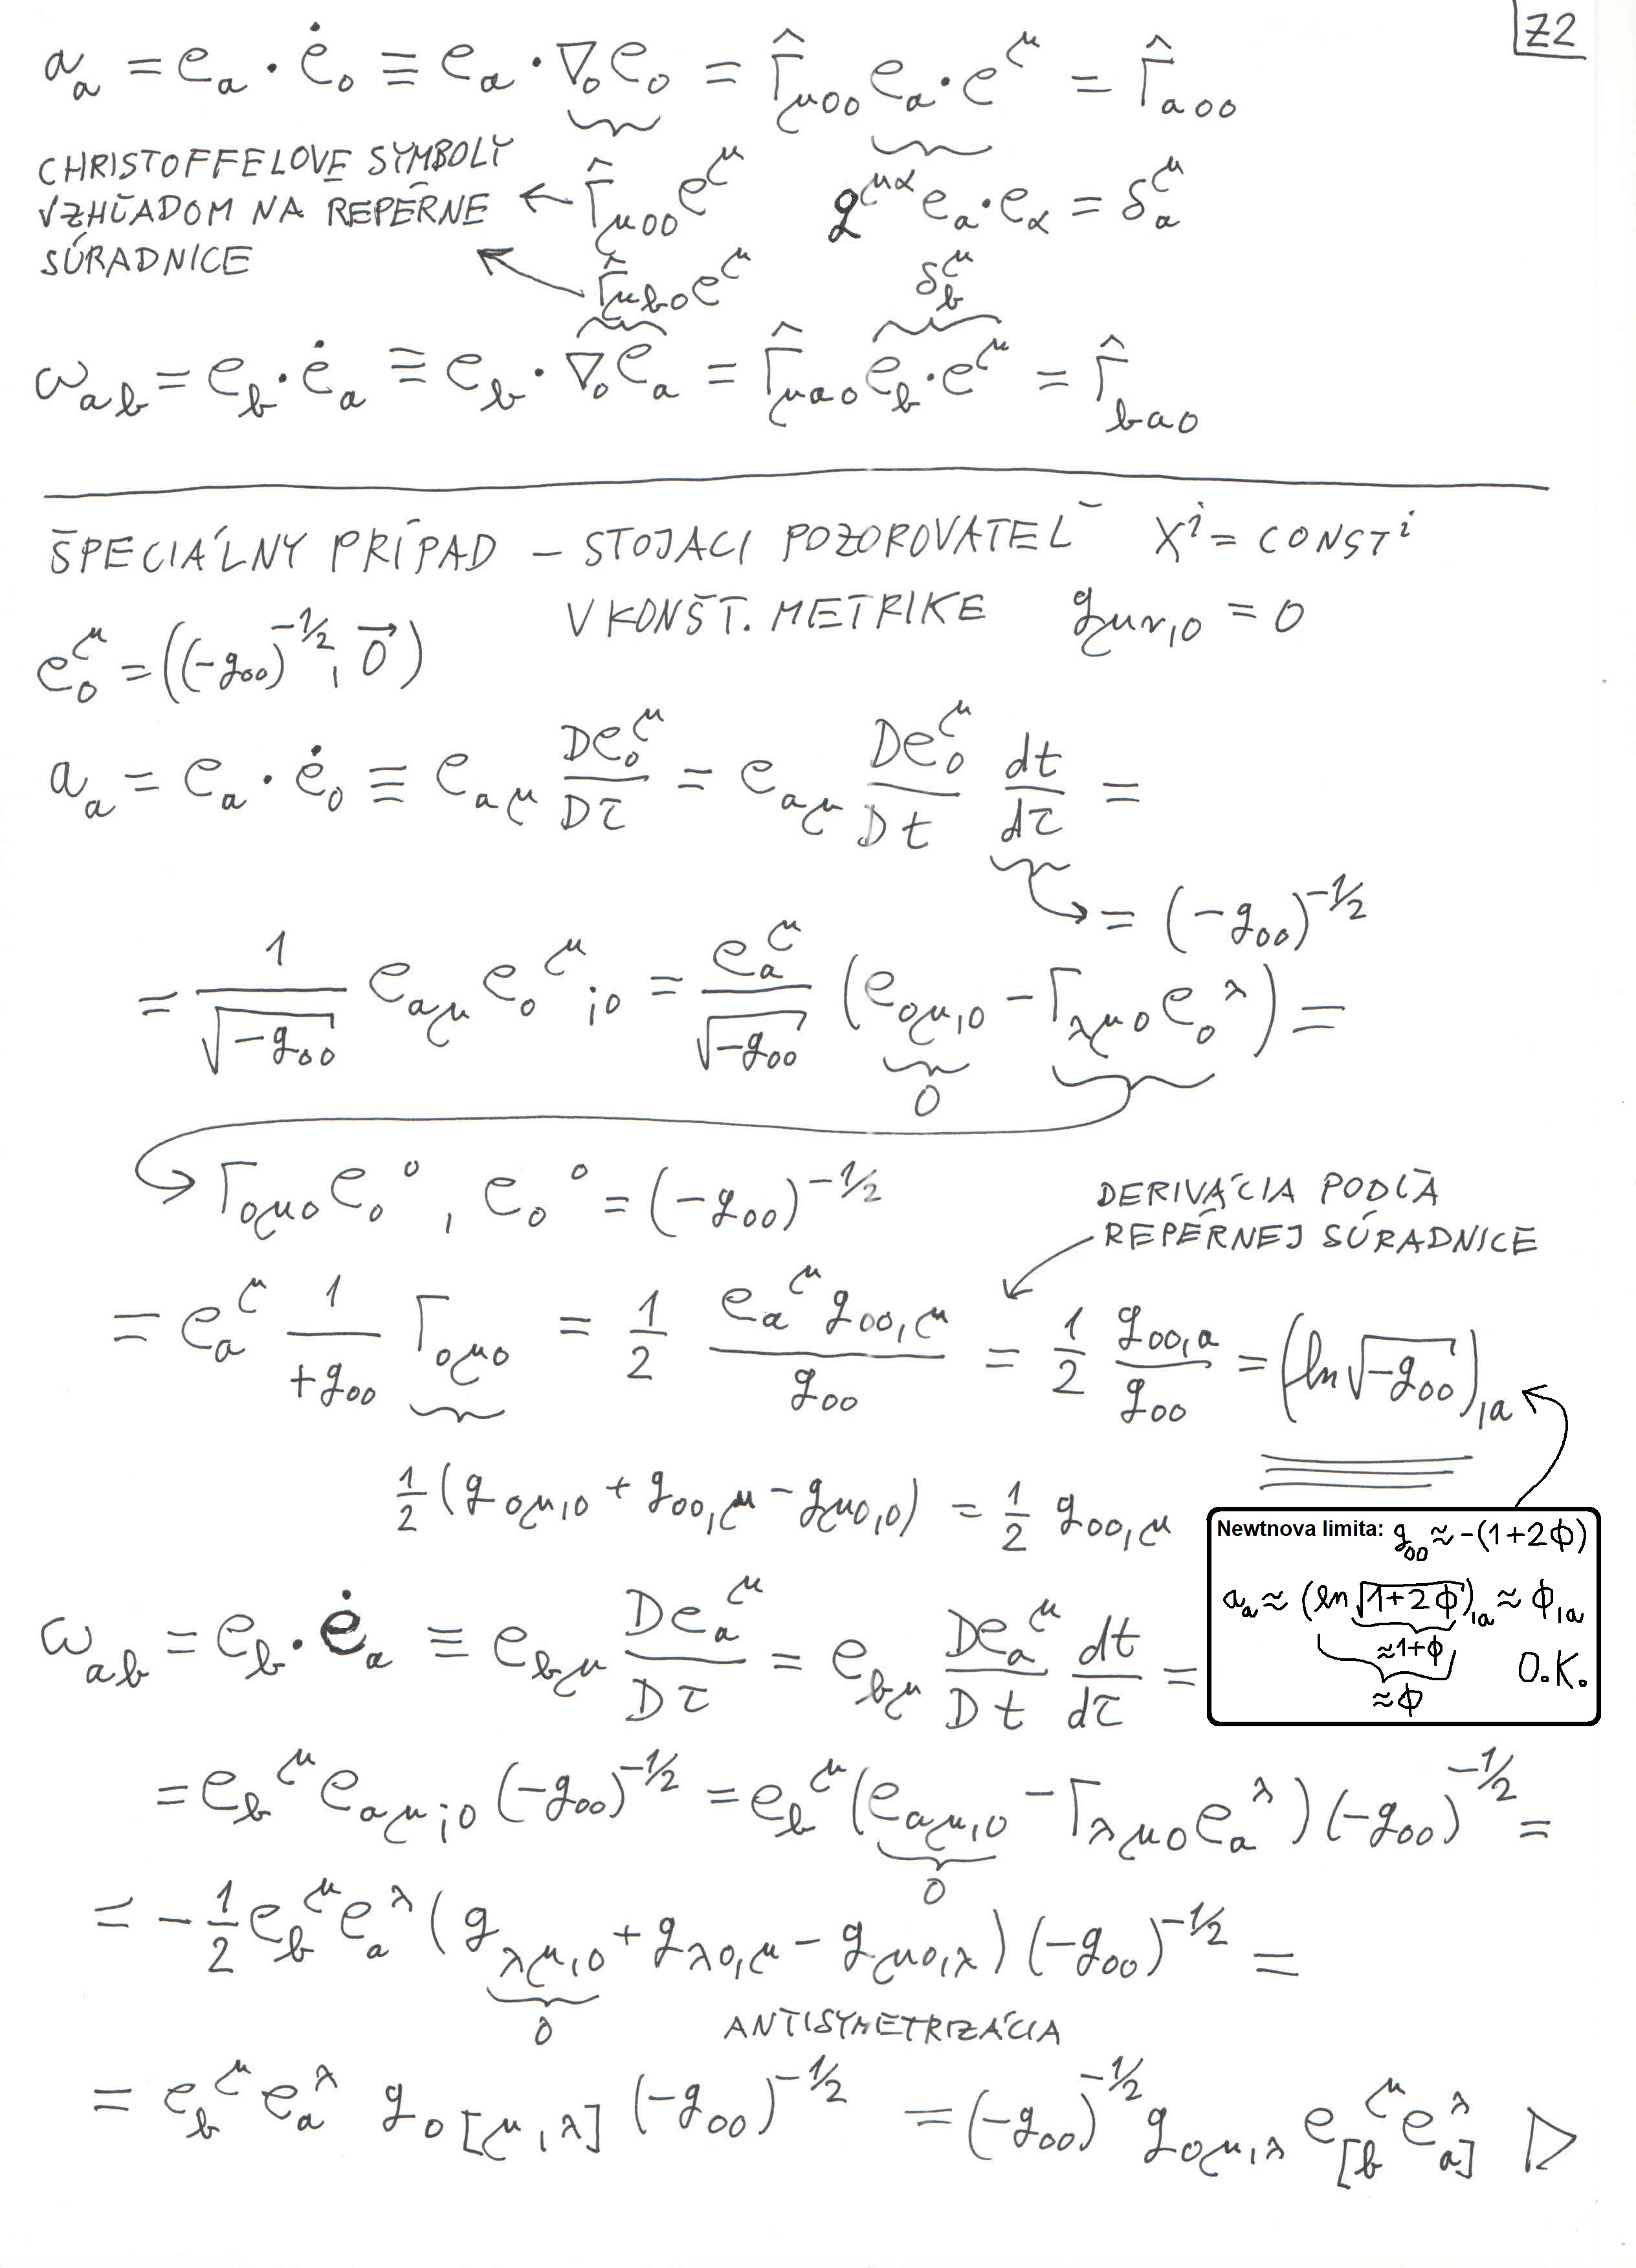 Z2
a_a = e_a · ė_0 ≡ e_a · ∇_0 e_0 = Γ̂_{μ00} e_a · e^μ = Γ̂_{a00}
CHRISTOFFELOVE SYMBOLY
VZHĽADOM NA REPÉRNE
SÚRADNICE
← Γ̂_{μ00} e^μ
g^{μα} e_a · e_α = δ_a^μ
Γ̂_{μb0} e^μ
δ_b^μ
ω_{ab} = e_b · ė_a ≡ e_b · ∇_0 e_a = Γ̂_{μa0} e_b · e^μ = Γ̂_{ba0}
ŠPECIÁLNY PRÍPAD – STOJACI POZOROVATEĽ x^i = CONST^i
V KONŠT. METRIKE g_{μν,0} = 0
e_0^μ = ((-g_{00})^{-1/2}, 0⃗)
a_a = e_a · ė_0 ≡ e_{aμ} De_0^μ/Dτ = e_{aμ} De_0^μ/Dt dt/dτ =
→ = (-g_{00})^{-1/2}
= 1/√(-g_{00}) e_{aμ} e_0^μ_{;0} = e_a^μ/√(-g_{00}) (e_{0μ,0} - Γ_{λμ0} e_0^λ) =
0
↪ Γ_{0μ0} e_0^0, e_0^0 = (-g_{00})^{-1/2}
DERIVÁCIA PODĽA
REPÉRNEJ SÚRADNICE
= e_a^μ 1/+g_{00} Γ_{0μ0} = 1/2 e_a^μ g_{00,μ}/g_{00} = 1/2 g_{00,a}/g_{00} = (ln√(-g_{00}))_{,a}
1/2 (g_{0μ,0} + g_{00,μ} - g_{μ0,0}) = 1/2 g_{00,μ}
Newtnova limita: g_{00} ≈ -(1+2ϕ)
a_a ≈ (ln√(1+2ϕ))_{,a} ≈ ϕ_{,a}
≈1+ϕ
≈ϕ
O.K.
ω_{ab} = e_b · ė_a ≡ e_{bμ} De_a^μ/Dτ = e_{bμ} De_a^μ/Dt dt/dτ =
= e_b^μ e_{aμ;0} (-g_{00})^{-1/2} = e_b^μ (e_{aμ,0} - Γ_{λμ0} e_a^λ)(-g_{00})^{-1/2} =
0
= -1/2 e_b^μ e_a^λ (g_{λμ,0} + g_{λ0,μ} - g_{μ0,λ})(-g_{00})^{-1/2} =
0
ANTISYMETRIZÁCIA
= e_b^μ e_a^λ g_{0[μ,λ]} (-g_{00})^{-1/2} = (-g_{00})^{-1/2} g_{0μ,λ} e_{[b}^μ e_{a]}^λ ▷